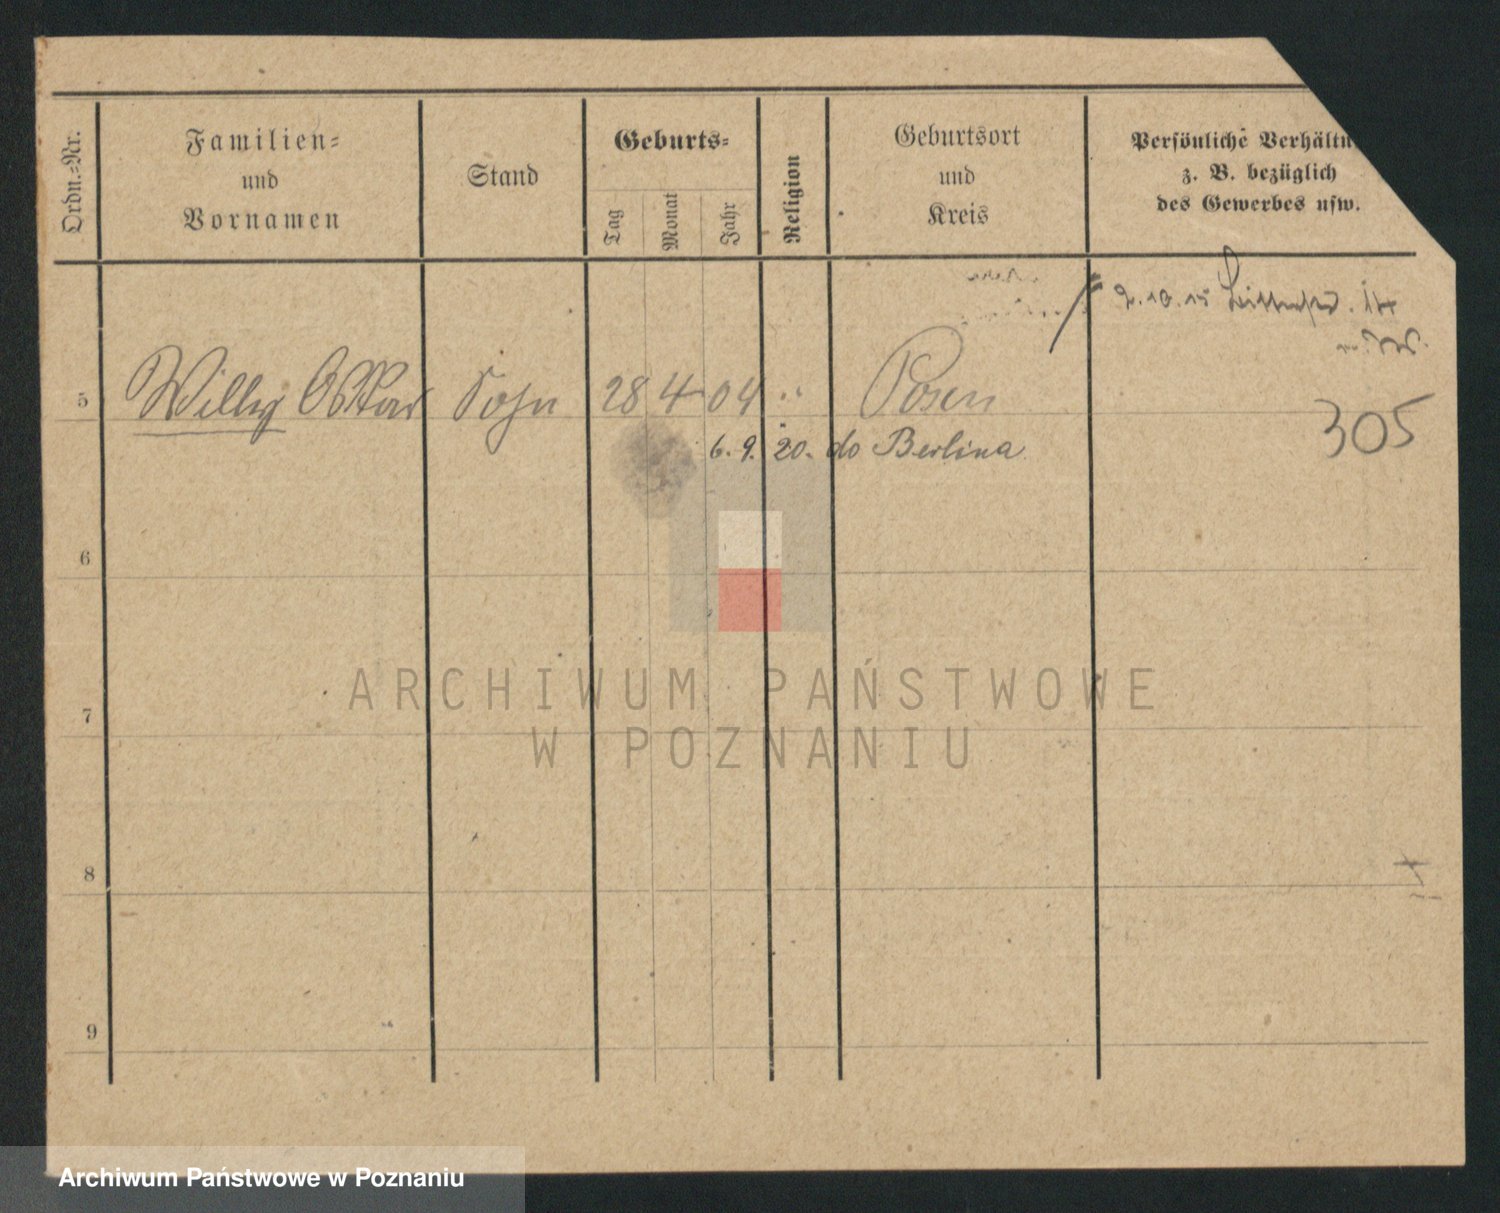 Ordn.=Nr.
Familien=
und
Vornamen
Stand
Geburts=
Tag
Monat
Jahr
Religion
Geburtsort
und
Kreis
Persönliche Verhältn
z. B. bezüglich
des Gewerbes usw.
2.10.15 14
5 Willy Oskar Sohn 28 4 04 " Posen
305
6. 9. 20. do Berlina
6
7
8
9
ARCHIWUM PAŃSTWOWE
W POZNANIU
Archiwum Państwowe w Poznaniu